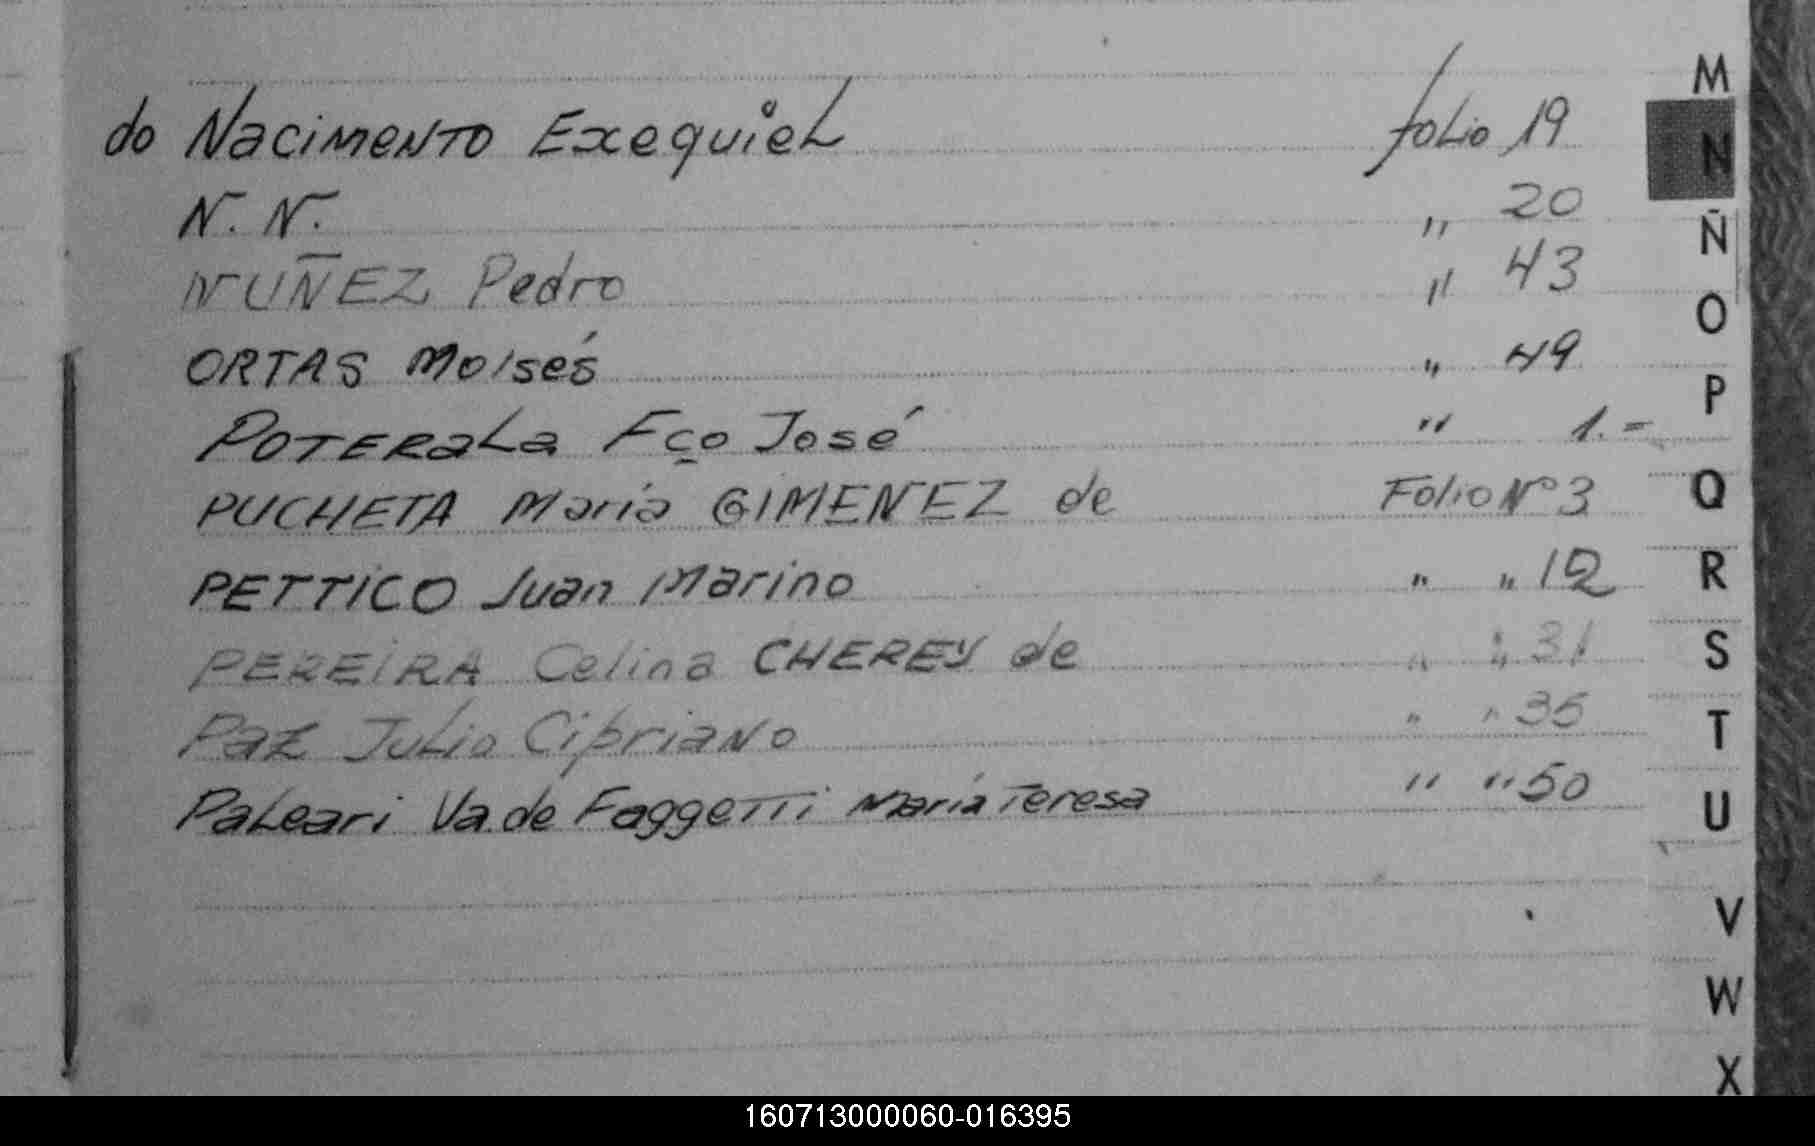 M
do Nacimento Exequiel folio 19
N
N. N. " 20
Ñ
NUÑEZ Pedro " 43
O
ORTAS Moisés " 49
P
POTERALA Fço José " 1.=
PUCHETA María GIMENEZ de Folio Nº 3
Q
PETTICO Juan Marino " " 12
R
PEREIRA Celina CHEREY de " " 31
S
Paz Julio Cipriano " " 35
T
Paleari Va. de Faggetti María Teresa " " 50
U
V
W
X
160713000060-016395